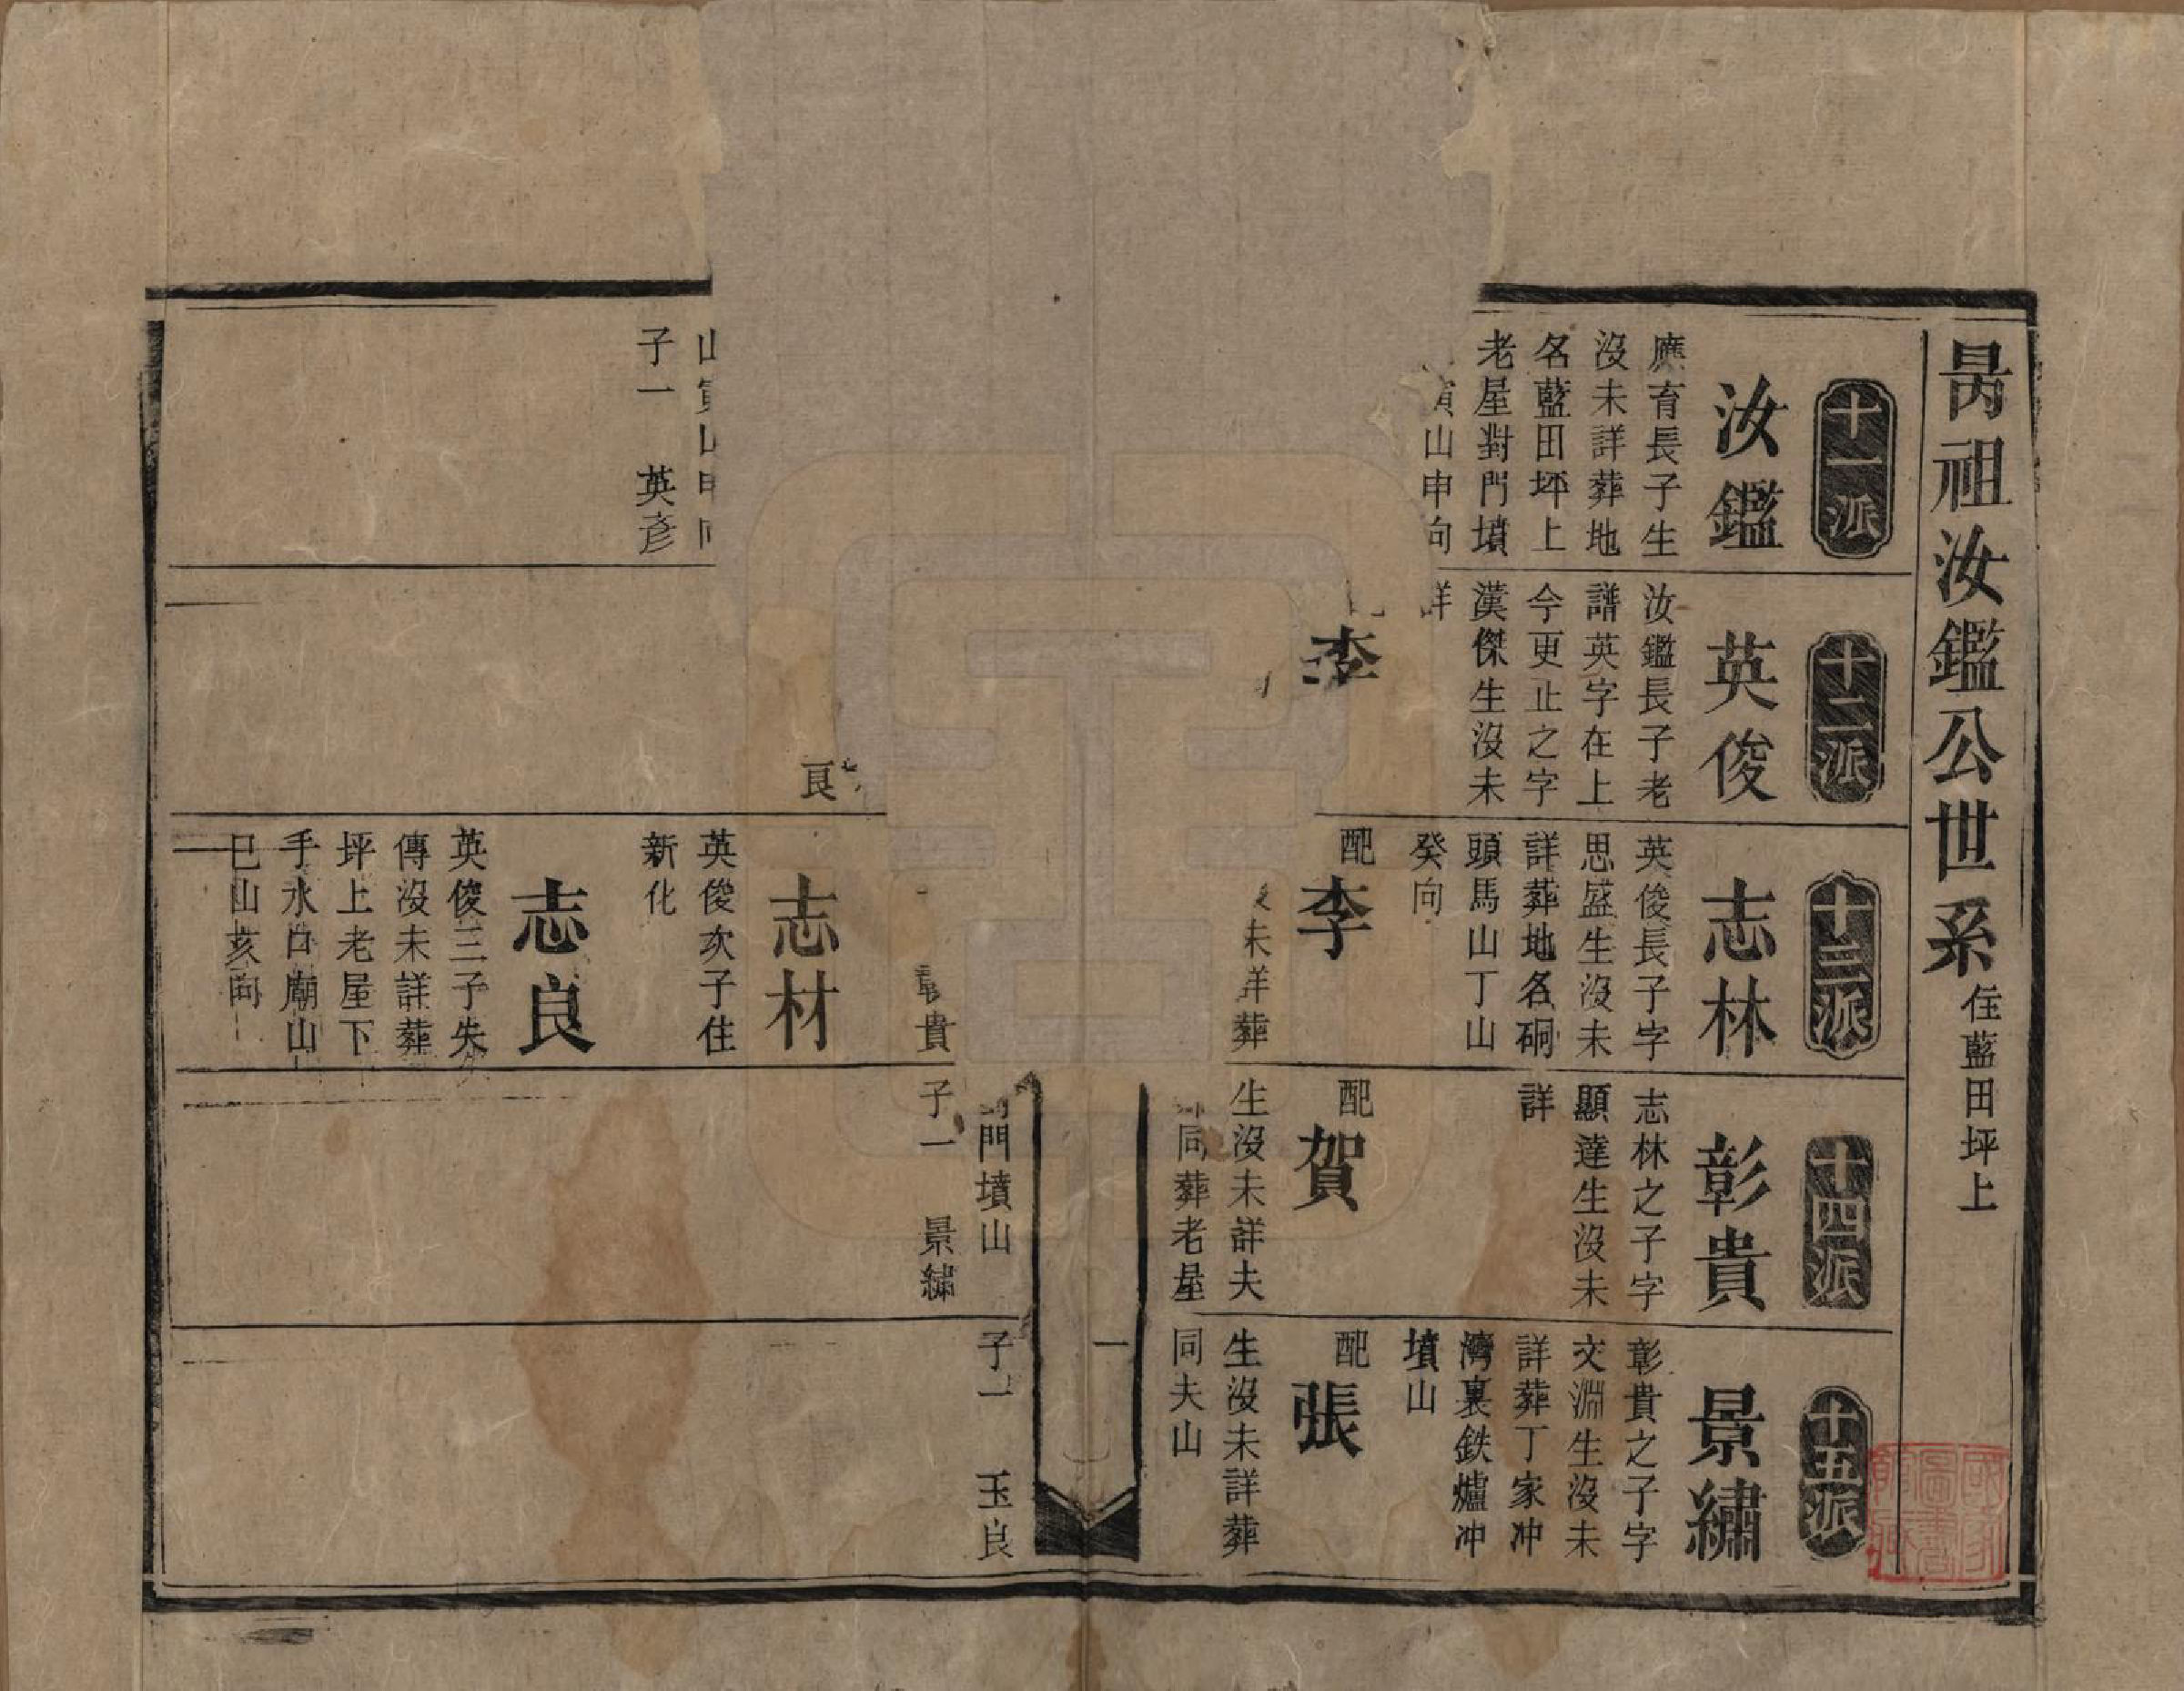 昺祖汝鑑公世系住藍田坪上
十一派
汝鑑
應育長子生
沒未詳葬地
名藍田坪上
老屋對門墳
山申向
子一 英彥
十二派
英俊
汝鑑長子老
譜英字在上
今更止之字
漢傑生沒未
詳
李
良
十三派
志林
英俊長子字
思盛生沒未
詳葬地名硐
頭馬山丁山
癸向
配李
未詳葬
貴
志材
英俊次子住
新化
志良
英俊三子失
傳沒未詳葬
坪上老屋下
手水口廟山
巳山亥向
十四派
彰貴
志林之子字
顯達生沒未
詳
配賀
生沒未詳夫
同葬老屋
門墳山
子一 景繡
十五派
景繡
彰貴之子字
文淵生沒未
詳葬丁家冲
灣裏鉄爐冲
墳山
配張
生沒未詳葬
同夫山
子一 玉良
一